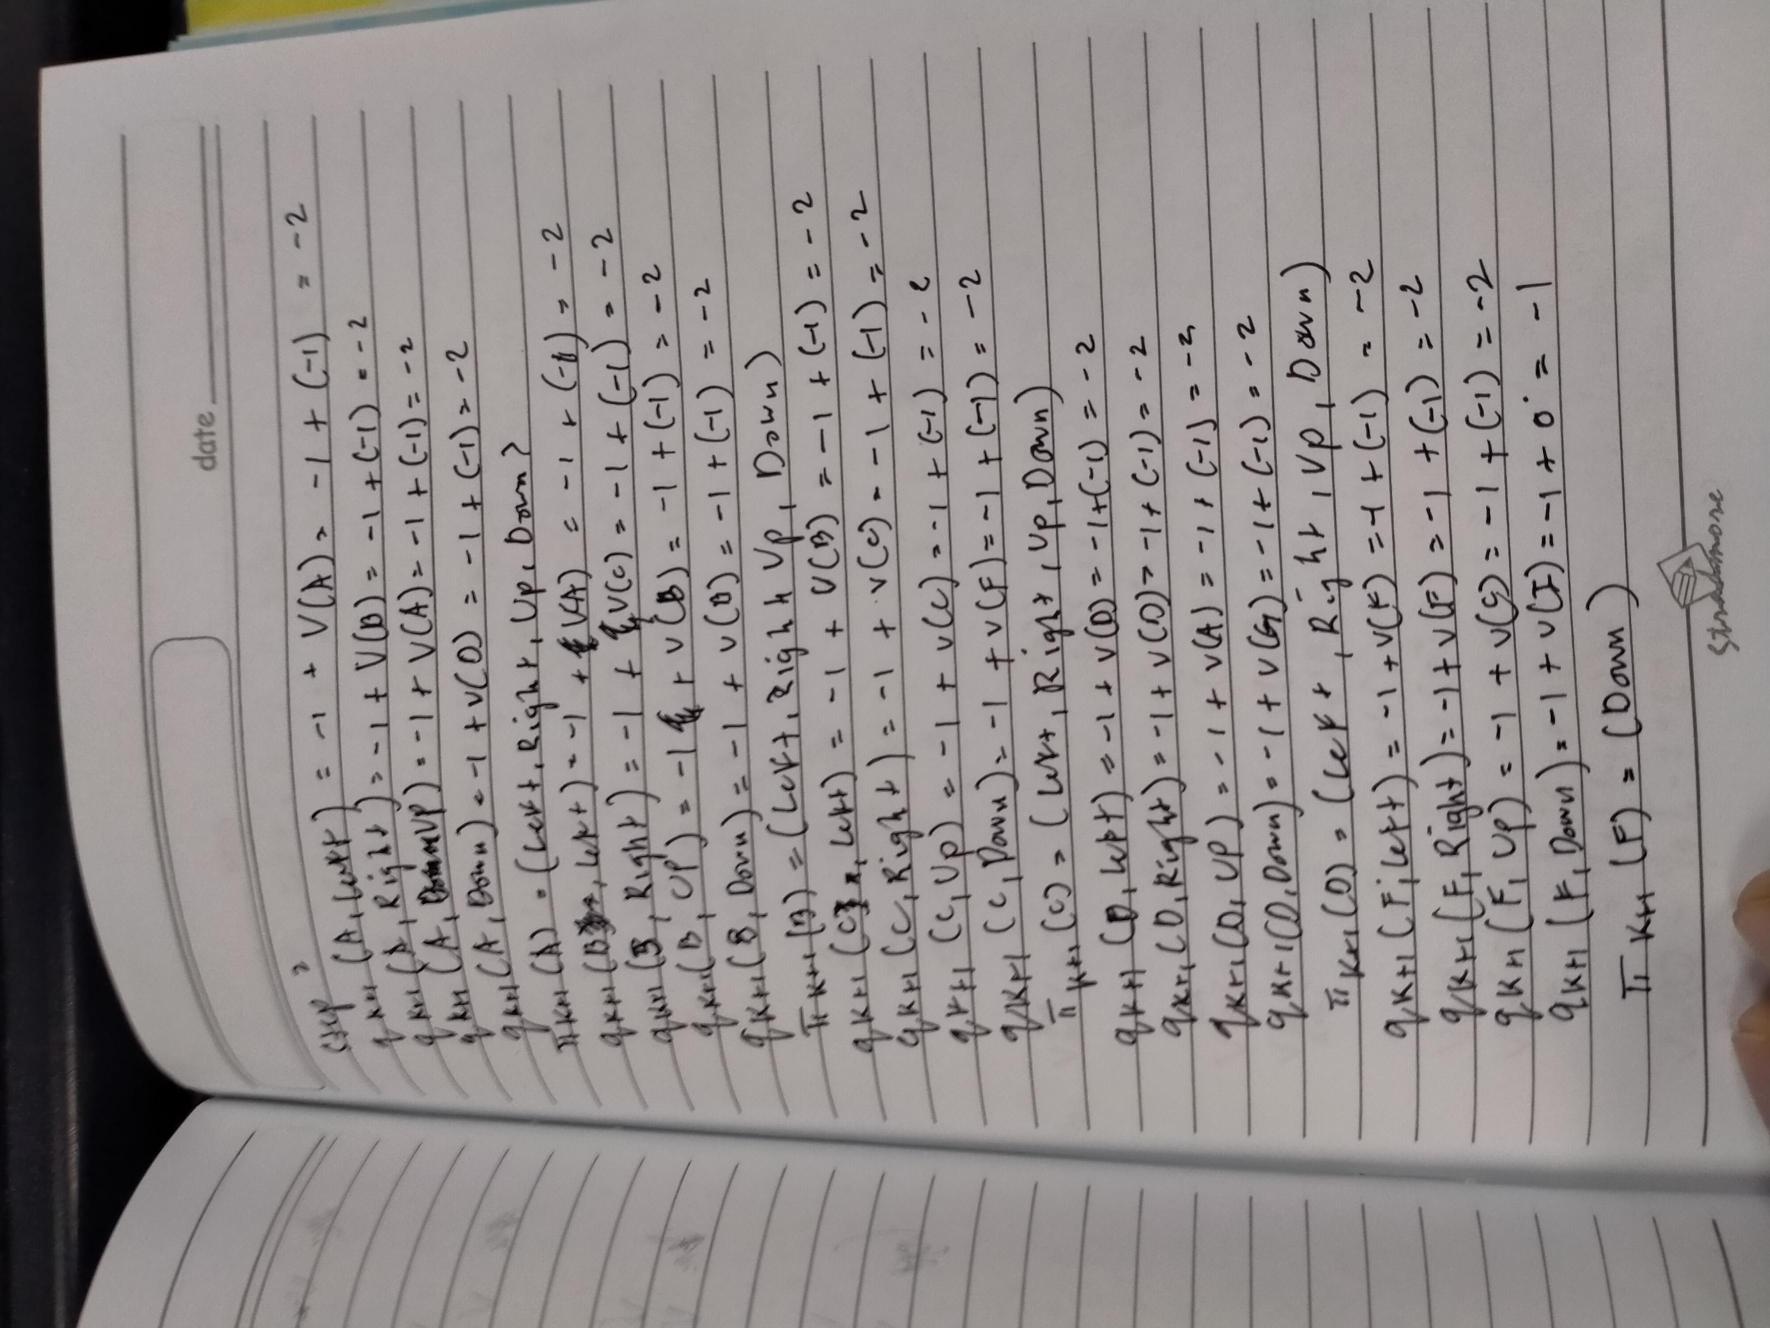 date
Step 2
qk+1 (A, Left) = -1 + V(A) = -1 + (-1) = -2
qk+1 (A, Right) = -1 + V(B) = -1 + (-1) = -2
qk+1 (A, UP) = -1 + V(A) = -1 + (-1) = -2
qk+1 (A, Down) = -1 + V(D) = -1 + (-1) = -2
πk+1 (A) = (Left, Right, Up, Down)
qk+1 (B, Left) = -1 + V(A) = -1 + (-1) = -2
qk+1 (B, Right) = -1 + V(C) = -1 + (-1) = -2
qk+1 (B, UP) = -1 + V(B) = -1 + (-1) = -2
qk+1 (B, Down) = -1 + V(B) = -1 + (-1) = -2
πk+1 (B) = (Left, Right, Up, Down)
qk+1 (C, Left) = -1 + V(B) = -1 + (-1) = -2
qk+1 (C, Right) = -1 + V(C) = -1 + (-1) = -2
qk+1 (C, Up) = -1 + V(C) = -1 + (-1) = -2
qk+1 (C, Down) = -1 + V(F) = -1 + (-1) = -2
πk+1 (C) = (Left, Right, Up, Down)
qk+1 (D, Left) = -1 + V(D) = -1+(-1) = -2
qk+1 (D, Right) = -1 + V(D) = -1 + (-1) = -2
qk+1 (D, UP) = -1 + V(A) = -1 + (-1) = -2
qk+1 (D, Down) = -1 + V(G) = -1 + (-1) = -2
πk+1 (D) = (Left, Right, Up, Down)
qk+1 (F, Left) = -1 + V(F) = -1 + (-1) = -2
qk+1 (F, Right) = -1 + V(F) = -1 + (-1) = -2
qk+1 (F, Up) = -1 + V(C) = -1 + (-1) = -2
qk+1 (F, Down) = -1 + V(I) = -1 + 0 = -1
πk+1 (F) = (Down)
Strathmore